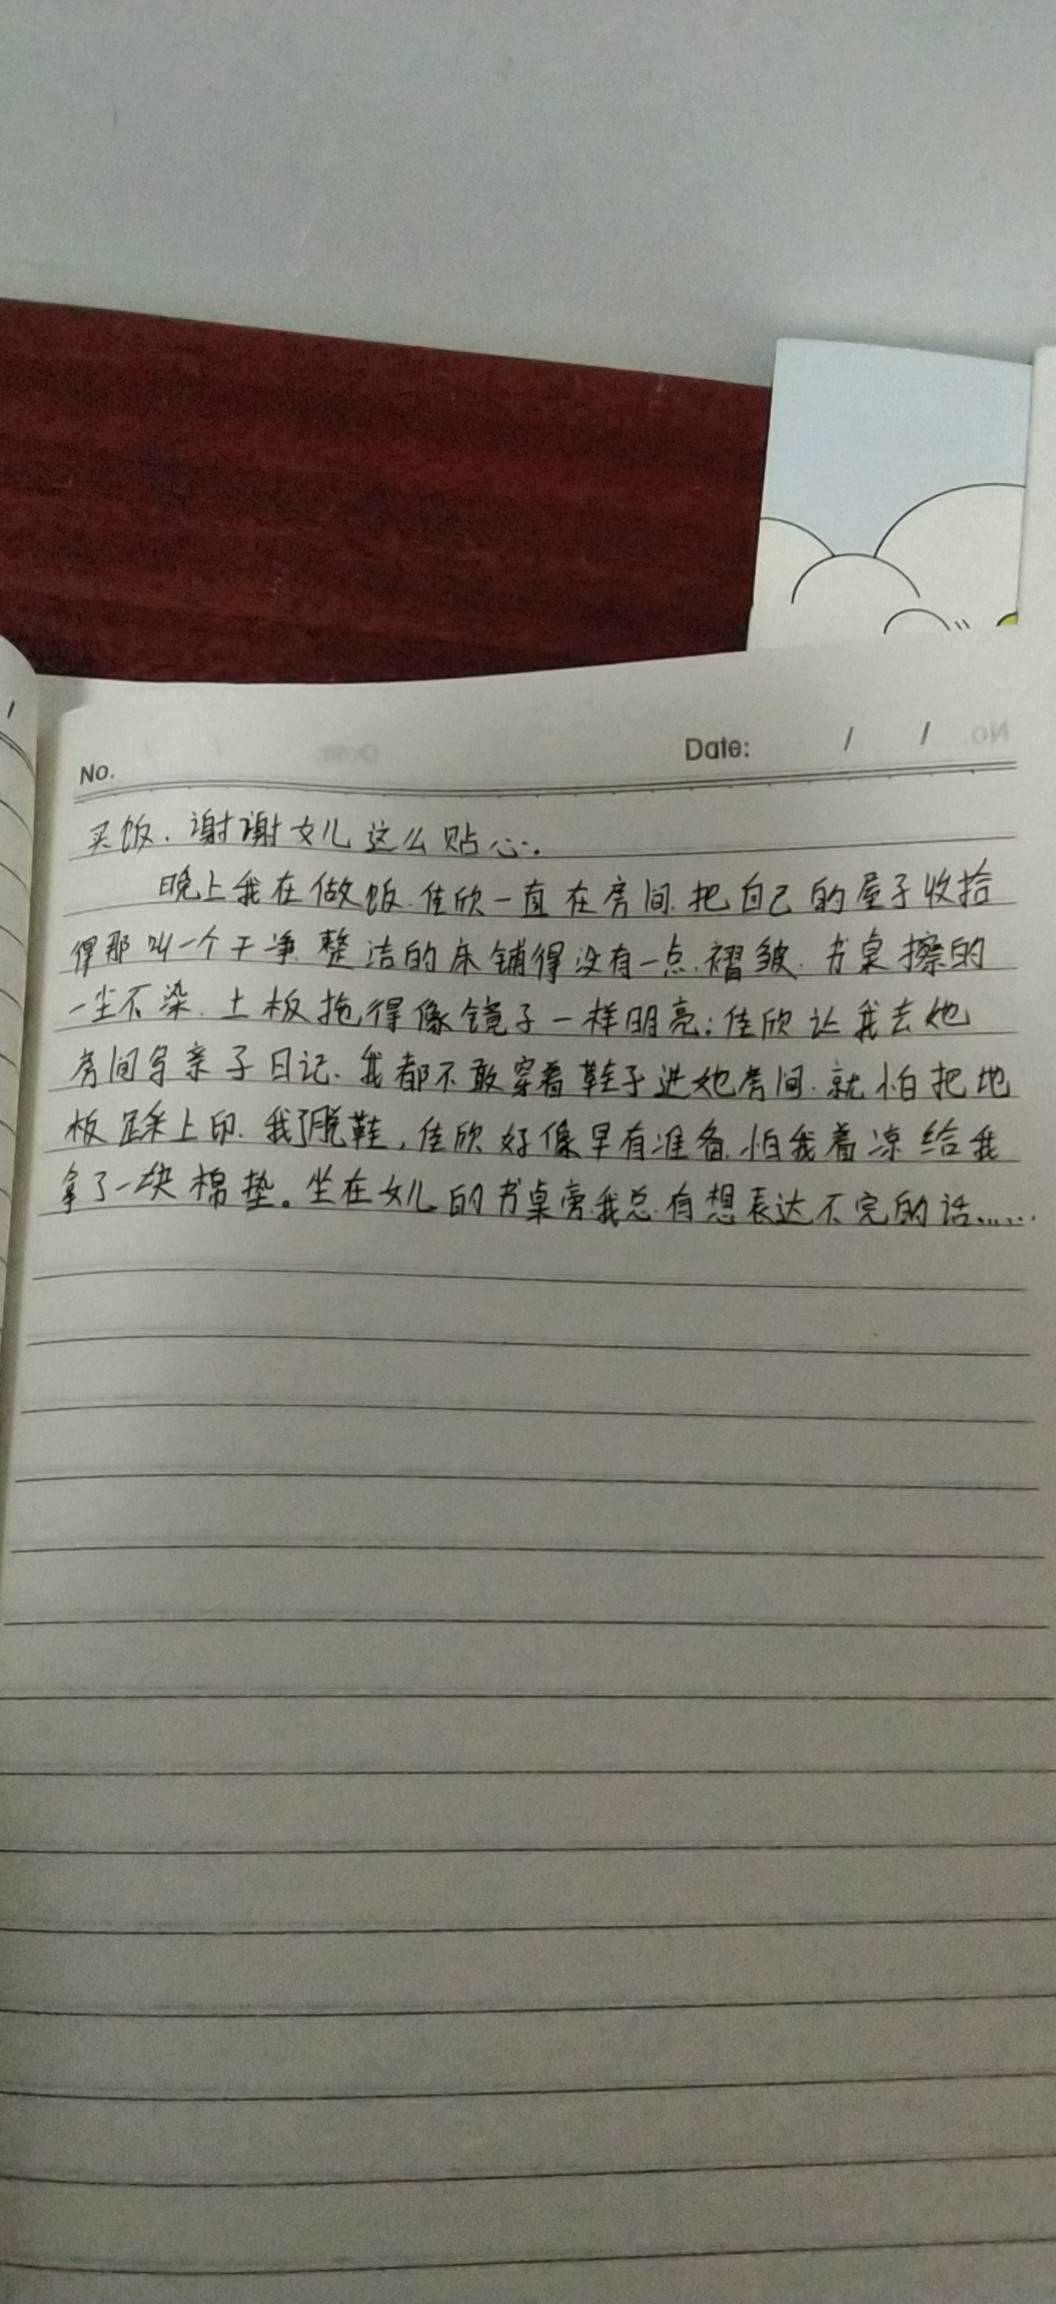 No.
Date: / /
买饭.谢谢女儿这么贴心.
晚上我在做饭.佳欣一直在房间.把自己的屋子收拾
得那叫一个干净.整洁的床铺得没有一点.褶皱.书桌擦的
一尘不染.土板拖得像镜子一样明亮;佳欣让我去她
房间写亲子日记.我都不敢穿着鞋子进她房间.就怕把地
板踩上印.我脱鞋,佳欣好像早有准备.怕我着凉给我
拿了一块棉垫。坐在女儿的书桌旁.我总有想表达不完的话......